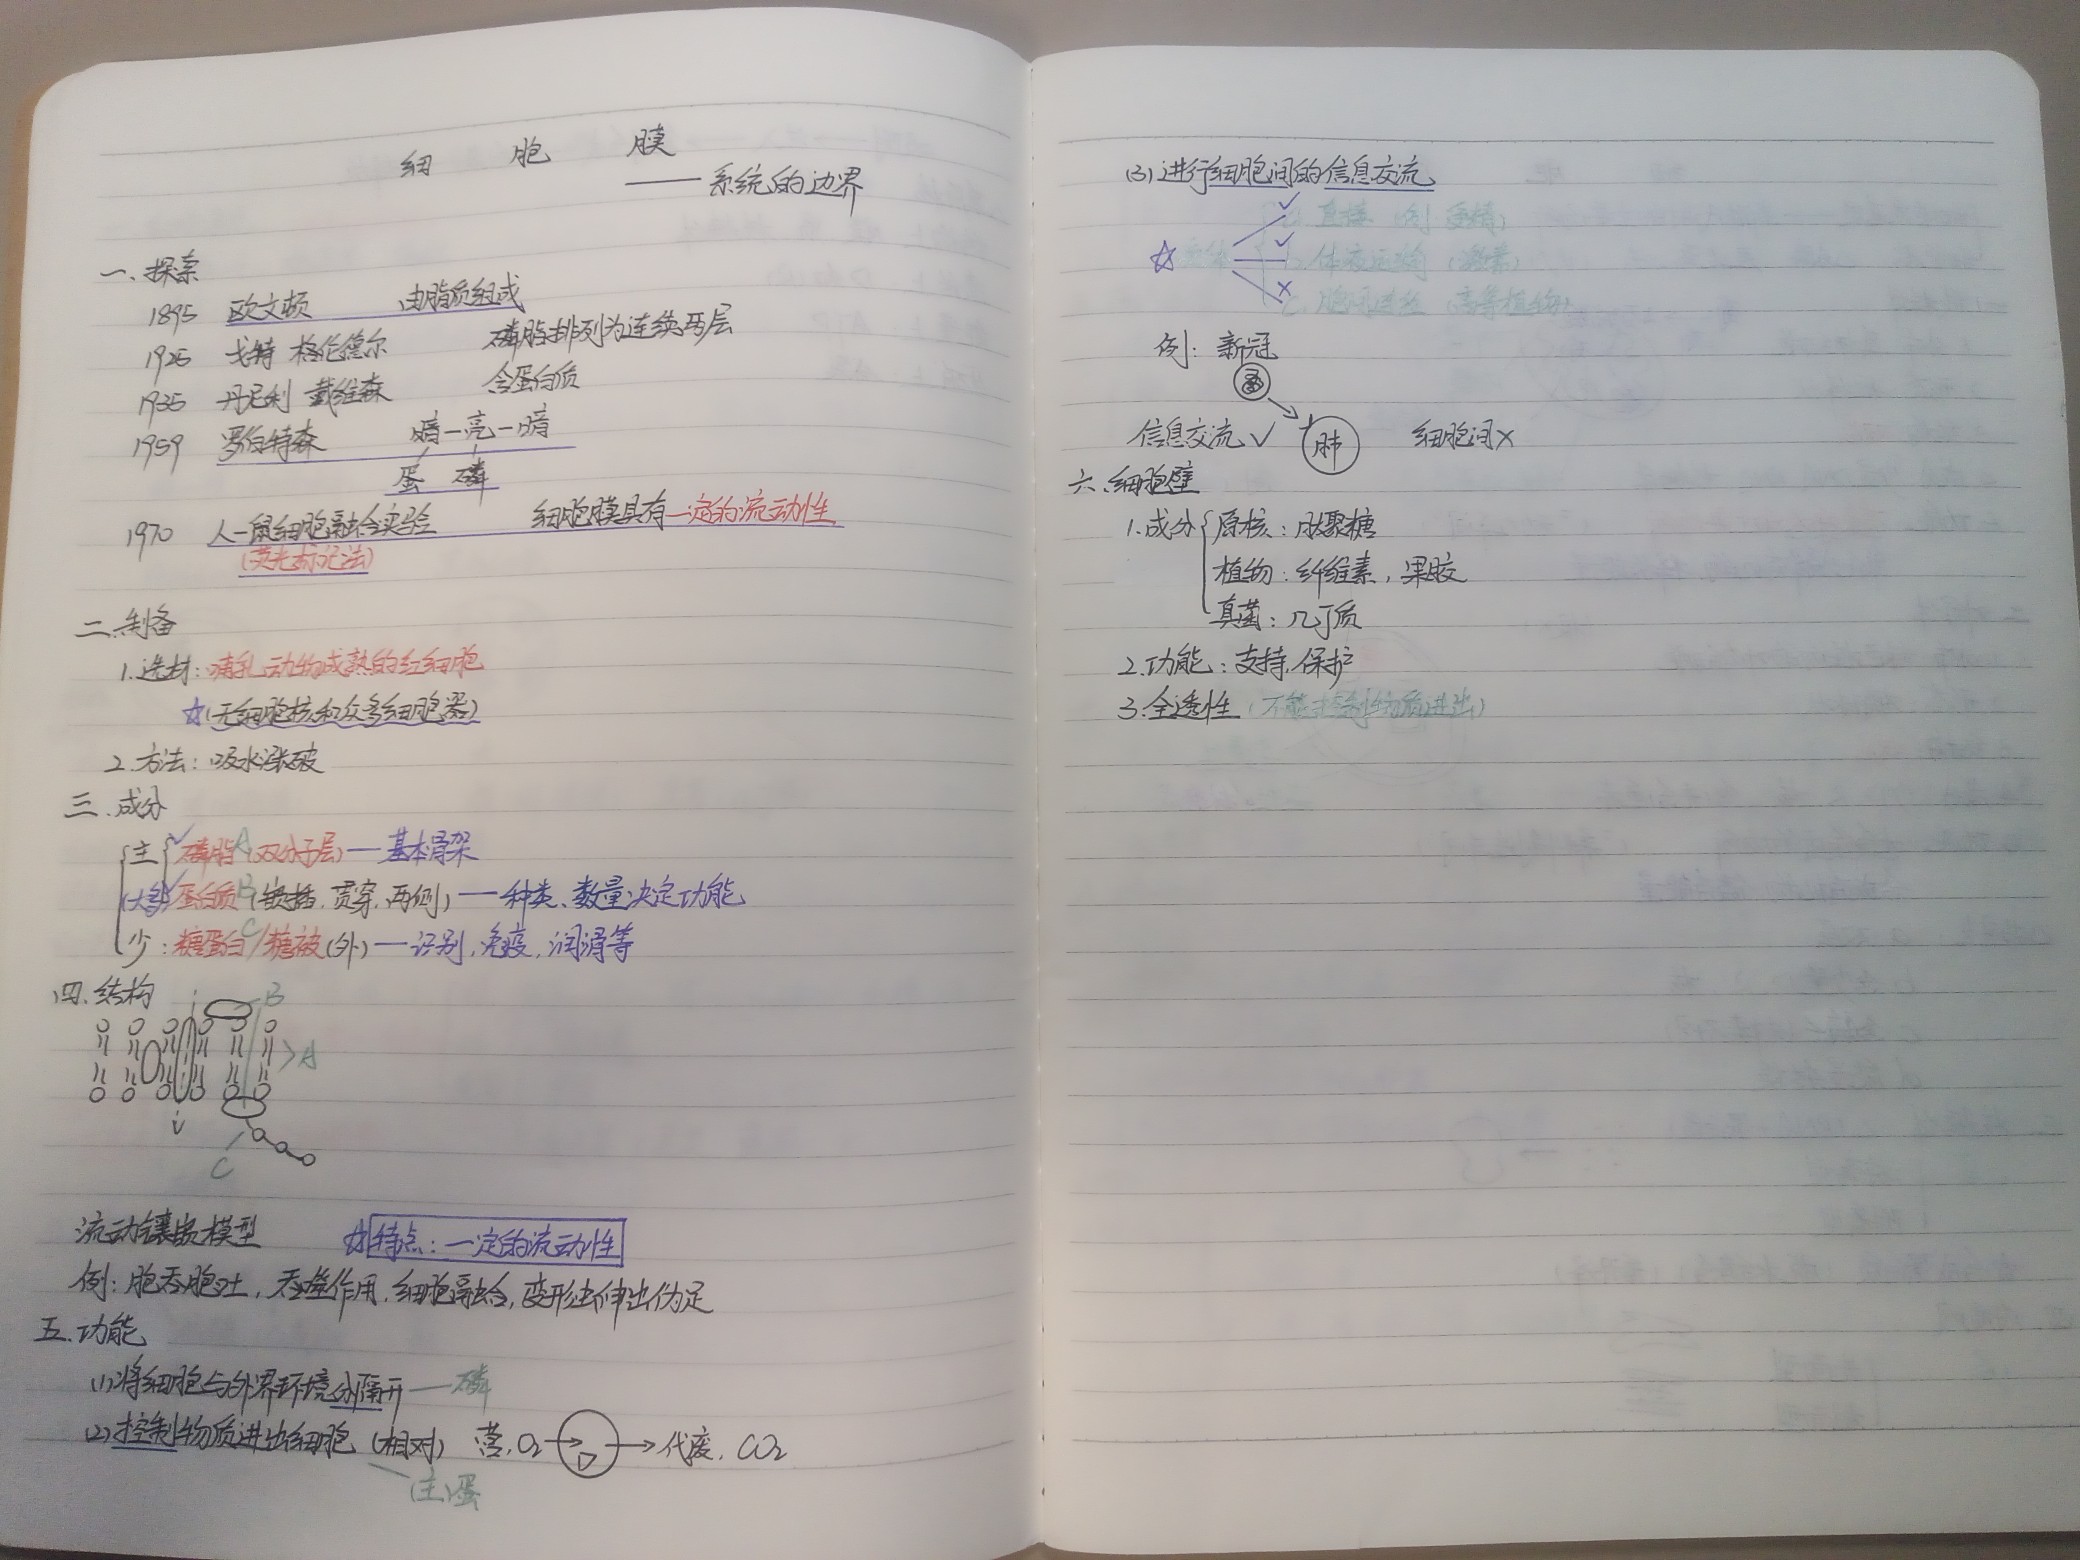 细 胞 膜
——系统的边界
一.探索
1895 欧文顿 由脂质组成
1925 戈特 格伦德尔 磷脂排列为连续两层
1935 丹尼利 戴维森 含蛋白质
1959 罗伯特森 暗—亮—暗
蛋 磷
1970 人—鼠细胞融合实验 细胞膜具有一定的流动性
(荧光标记法)
二.制备
1.选材:哺乳动物成熟的红细胞
☆(无细胞核和众多细胞器)
2.方法:吸水涨破
三.成分
主 磷脂A(双分子层)—基本骨架
(大多) 蛋白质B(镶插,贯穿,两侧)—种类、数量决定功能
少:糖蛋白C/糖被(外)—识别,免疫,润滑等
四.结构
B
A
C
流动镶嵌模型 ☆特点:一定的流动性
例:胞吞胞吐,吞噬作用,细胞融合,变形虫伸出伪足
五.功能
(1)将细胞与外界环境分隔开——磷
(2)控制物质进出细胞(相对) 营,O₂→→代废,CO₂
(主)蛋
(3)进行细胞间的信息交流
a.直接(例 受精)
☆ b.体液运输(激素)
c.胞间连丝(高等植物)
例:新冠
信息交流✓ 肺 细胞间×
六.细胞壁
1.成分 原核:肽聚糖
植物:纤维素,果胶
真菌:几丁质
2.功能:支持,保护
3.全透性(不能控制物质进出)